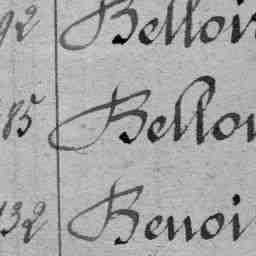 92 Belloir
85 Bellou
132 Benoi